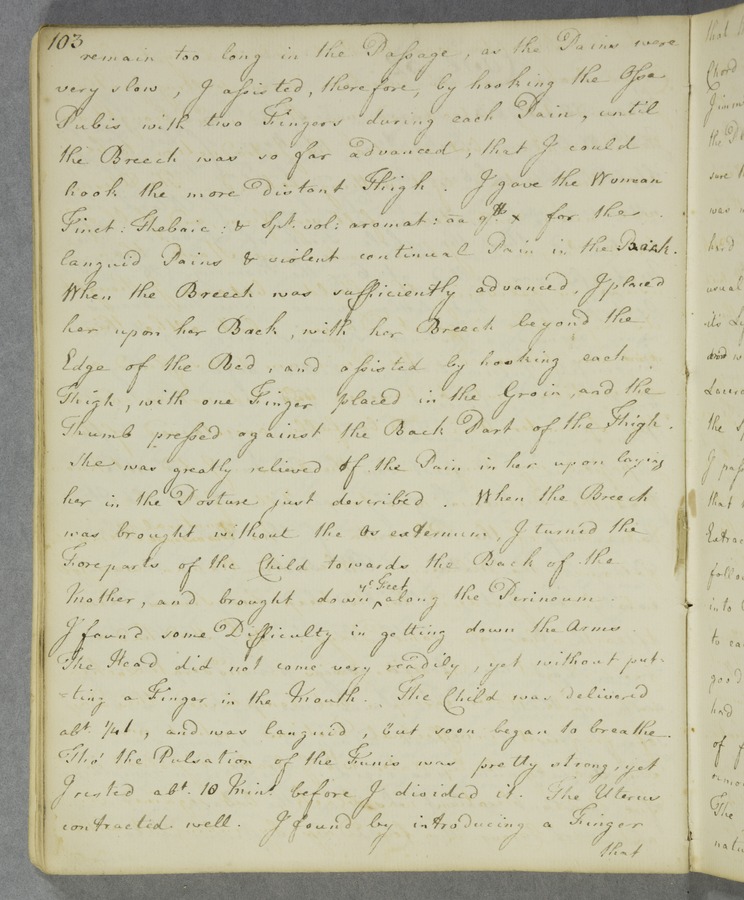 103
remain too long in the Passage, as the Pains were
very slow, I assisted, therefore, by hooking the Ossa
Pubis with two Fingers during each Pain, until
the Breech was so far advanced, that I could
hook the more Distant Thigh. I gave the Woman
Tinct: Thebaic: & Spt. vol: aromat: aa gtt x for the
languid Pains & violent continual Pain in the Back.
When the Breech was sufficiently advanced, I placed
her upon her Back, with her Breech beyond the
Edge of the Bed, and assisted by hooking each
Thigh, with one Finger placed in the Groin, and the
Thumb pressed against the Back Part of the Thigh.
She was greatly relieved of the Pain in her upon laying
her in the Posture just described. When the Breech
was brought without the Os externum, I turn'd the
Foreparts of the Child towards the Back of the
Mother, and brought down ye Feet along the Perineum.
I found some Difficulty in getting down the Arms.
The Head did not come very readily, yet without put-
-ting a Finger in the Mouth. The Child was delivered
abt. 1/4 1, and was languid, but soon began to breathe.
Tho' the Pulsation of the Funis was pretty strong, yet
I rested abt. 10 Mins. before I divided it. The Uterus
contracted well. I found by introducing a Finger
that